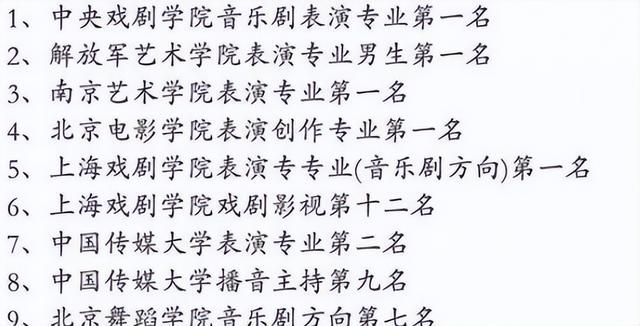 1、中央戏剧学院音乐剧表演专业第一名
2、解放军艺术学院表演专业男生第一名
3、南京艺术学院表演专业第一名
4、北京电影学院表演创作专业第一名
5、上海戏剧学院表演专专业(音乐剧方向)第一名
6、上海戏剧学院戏剧影视第十二名
7、中国传媒大学表演专业第二名
8、中国传媒大学播音主持第九名
9、北京舞蹈学院音乐剧方向第七名